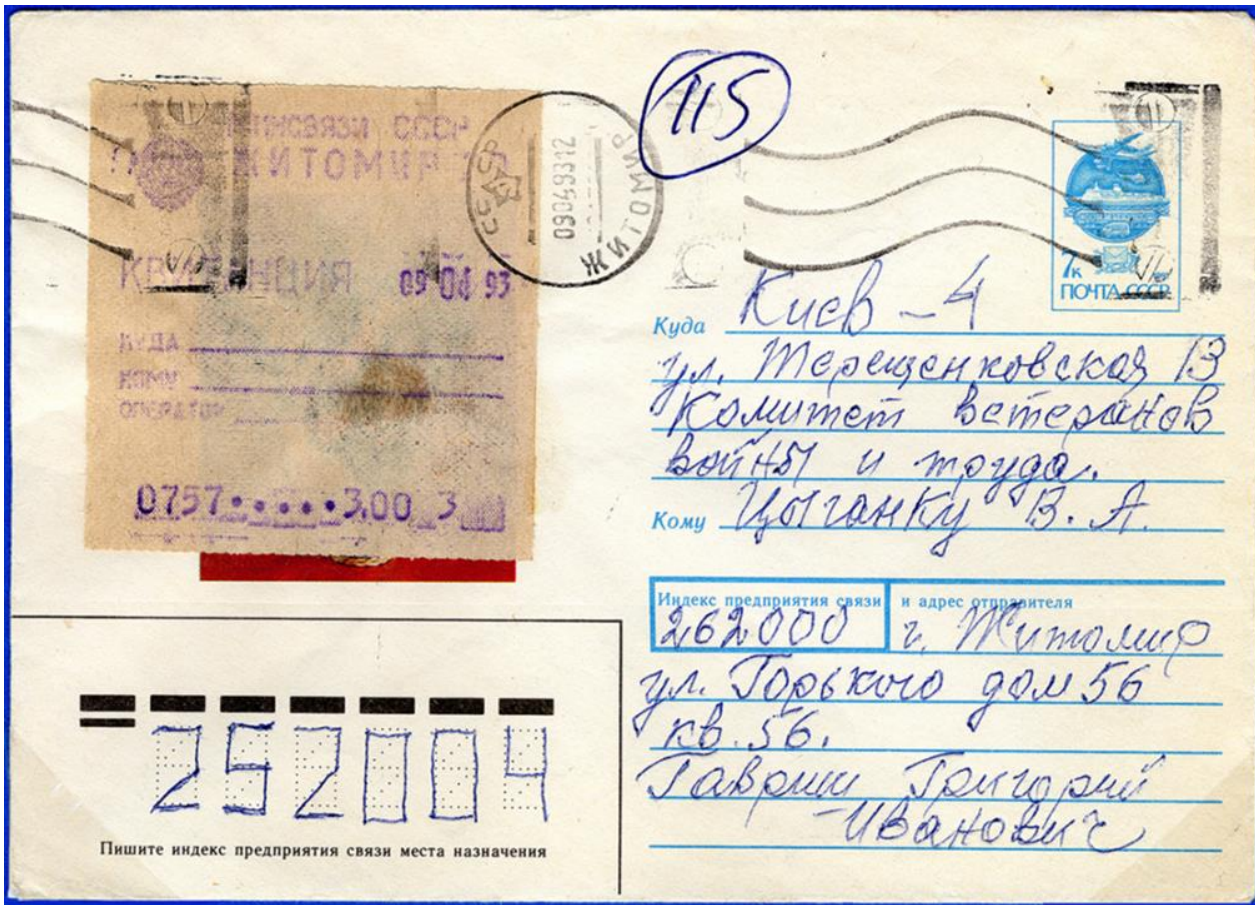 115
МИНСВЯЗИ СССР
ЖИТОМИР
КВИТАНЦИЯ 09 04 93
КУДА
КОМУ
ОПЕРАТОР
0757 3.00 3
СССР
09049312
ЖИТОМИР
7к
ПОЧТА СССР
Куда Киев-4
ул. Терещенковская 13
Комитет ветеранов
войны и труда.
Кому Цыганку В. А.
Индекс предприятия связи и адрес отправителя
262000 г. Житомир
ул. Горького дом 56
кв. 56.
Гавриш Григорий
Иванович
252004
Пишите индекс предприятия связи места назначения